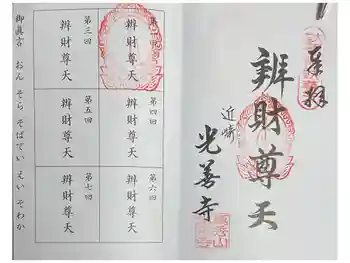 奉拝
辨財尊天
近崎
光善寺
辨財尊天
第三回
辨財尊天
第四回
辨財尊天
第五回
辨財尊天
第六回
辨財尊天
第七回
辨財尊天
御真言 おん そら そばてい えい そわか